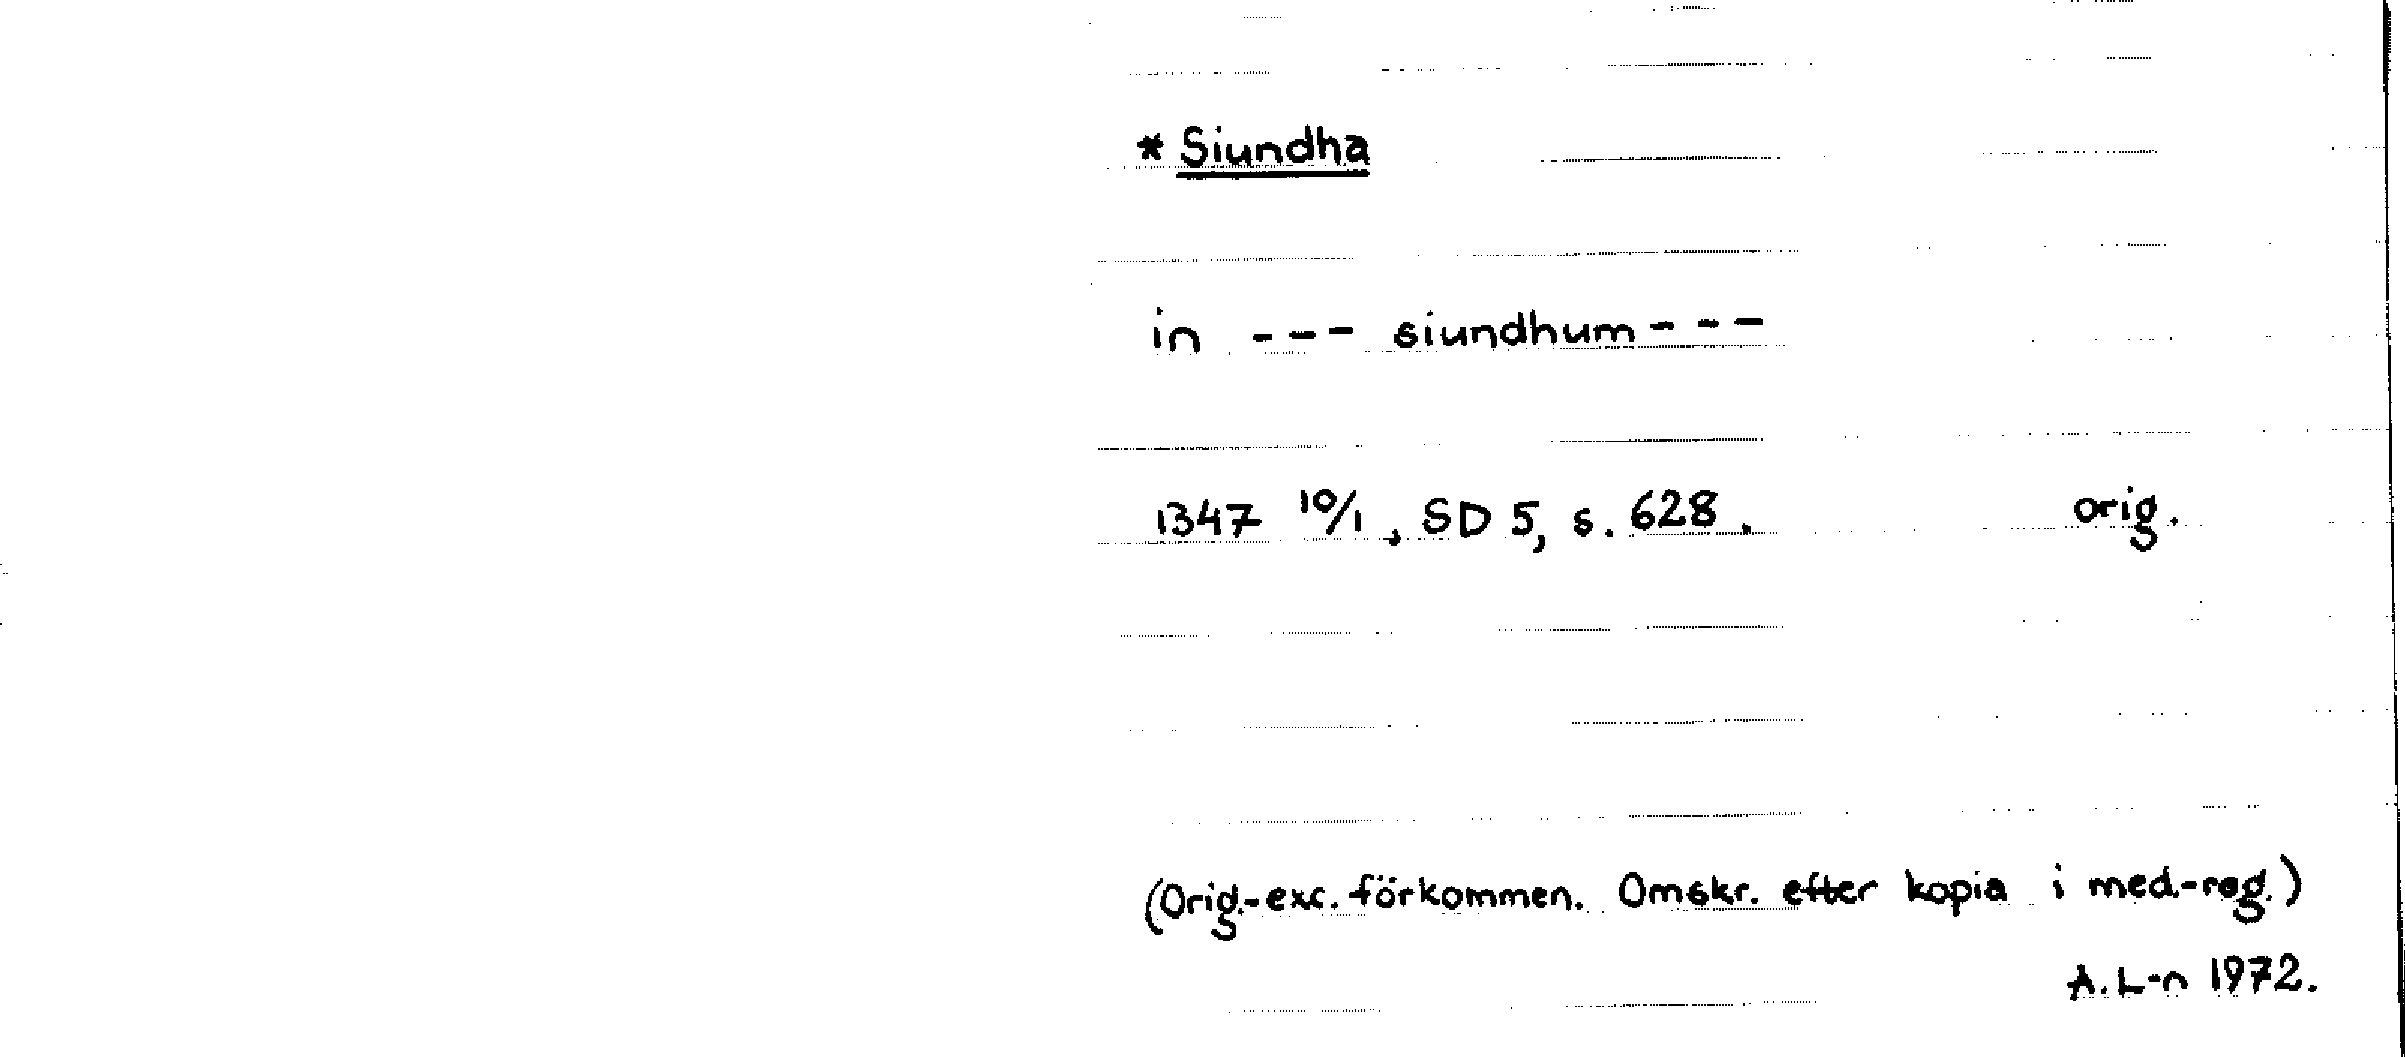 * Siundha
in --- siundhum ---
1347 10/1, SD 5, s. 628. orig.
(Orig.-exc. förkommen. Omskr. efter kopia i med.-reg.)
A. L-n 1972.